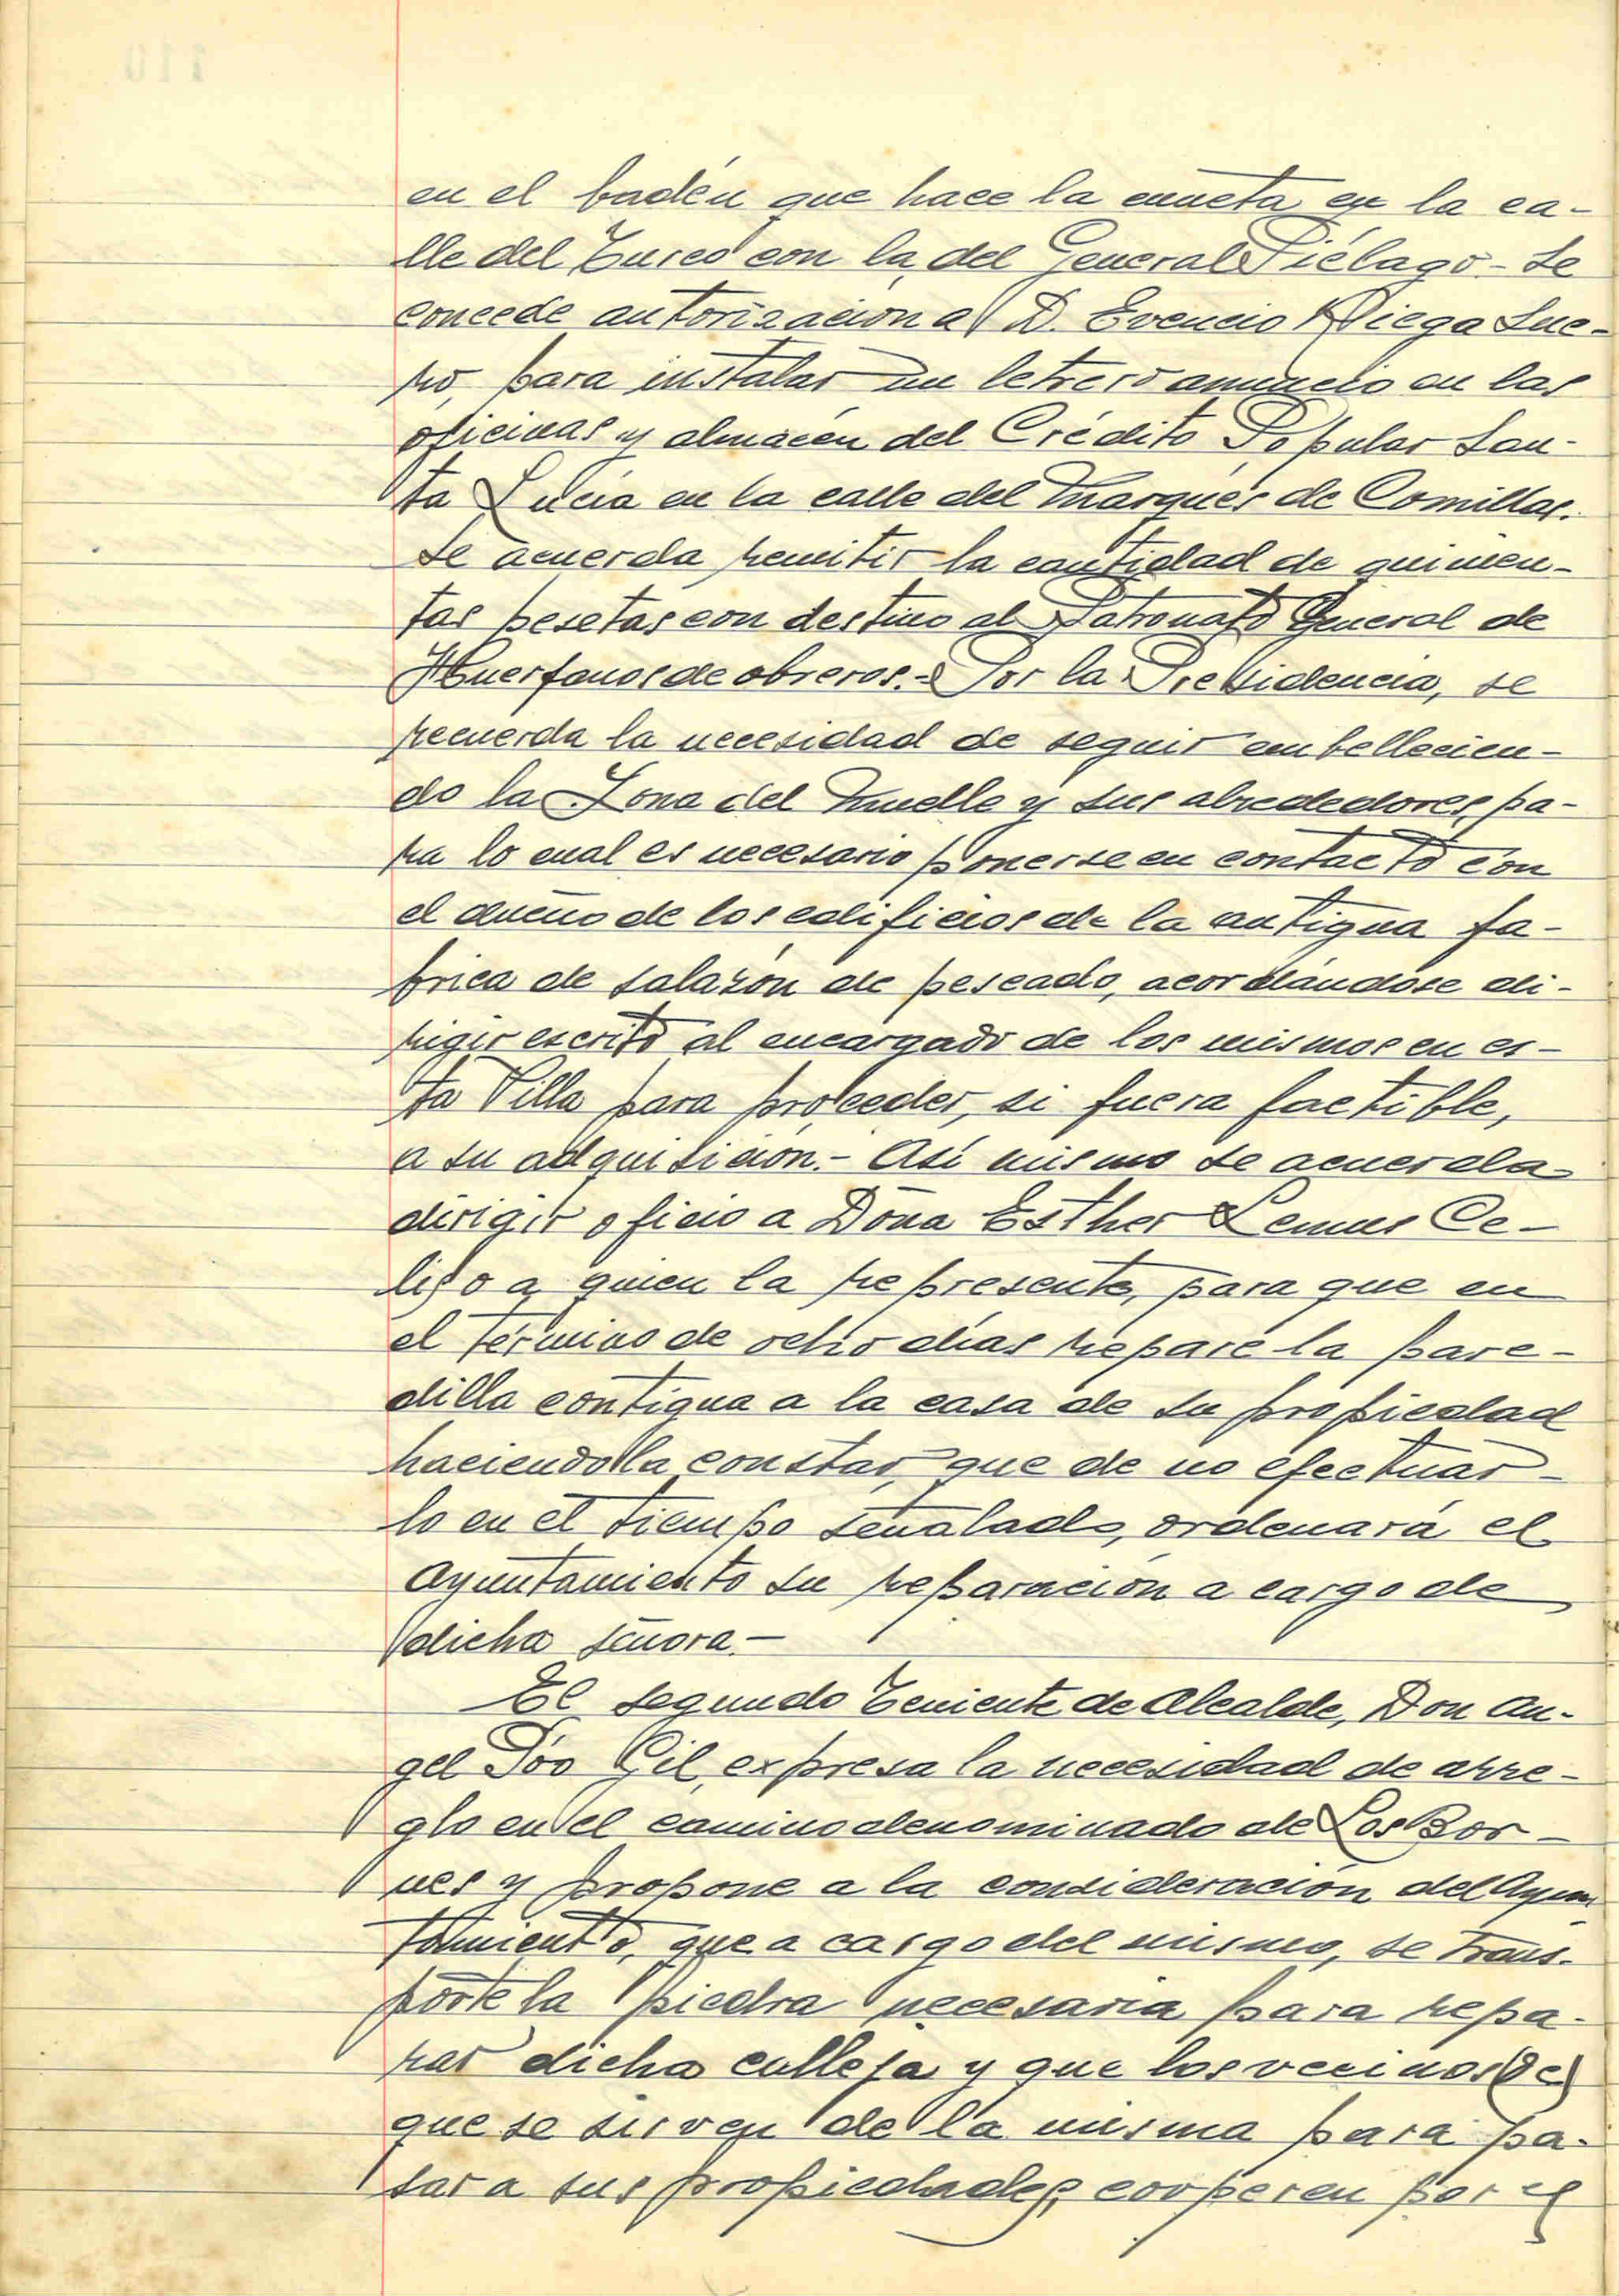 en el badén que hace la cuneta en la ca-
lle del Turco con la del General Piélago.- Se
concede autorización a D. Evencio Riega Sue-
ro, para instalar un letrero anuncio en las
oficinas y almacén del Crédito Popular San-
ta Lucía en la calle del Marqués de Comillas.
Se acuerda remitir la cantidad de quinien-
tas pesetas con destino al Patronato General de
Huerfanos de obreros.- Por la Presidencia, se
recuerda la necesidad de seguir embellecien-
do la Zona del Muelle y sus alrededores, pa-
ra lo cual es necesario ponerse en contacto con
el dueño de los edificios de la antigua fa-
brica de salazón de pescado, acordándose di-
rigir escrito al encargado de los mismos en es-
ta Villa para proceder, si fuera factible,
a su adquisición.- Así mismo se acuerda
dirigir oficio a Doña Esther Lemus Ce-
lis o a quien la represente, para que en
el término de ocho días repare la pare-
dilla contigua a la casa de su propiedad
haciendola constar, que de no efectuar-
lo en el tiempo señalado, ordenará el
Ayuntamiento su reparación a cargo de
dicha señora.-
El segundo Teniente de Alcalde, Don An-
gel Póo Gil, expresa la necesidad de arre-
glo en el camino denominado de Los Bor-
nes y propone a la consideración del Ayun-
tamiento, que a cargo del mismo, se trans-
porte la piedra necesaria para repa-
rar dicha calleja y que los vecinos (de)
que se sirven de la misma para pa-
sar a sus propiedades, cooperen por el
110